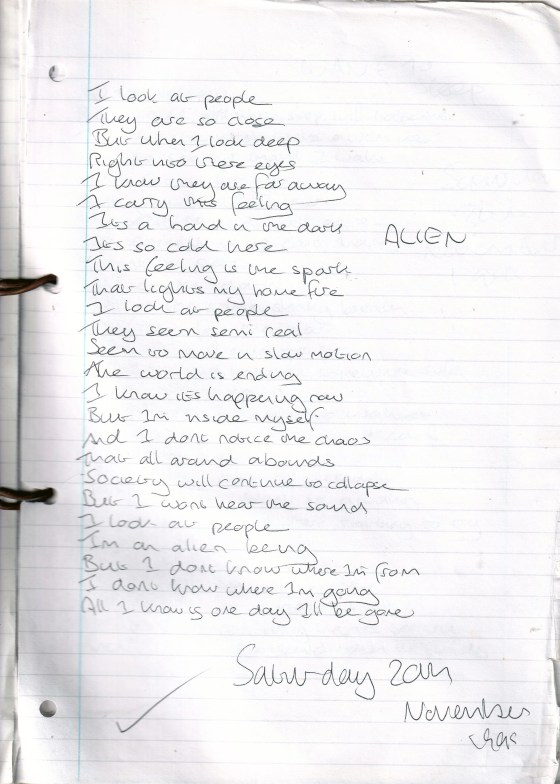 I look at people
They are so close
But when I look deep
Right into there eyes
I know they are far away
I carry this feeling
Its a hand in the dark
ALIEN
Its so cold here
This feeling is the spark
That lights my home fire
I look at people
They seem semi real
Seem to move in slow motion
The world is ending
I know its happening now
But Im inside myself
And I dont notice the chaos
That all around abounds
Society will continue to collapse
But I wont hear the sound
I look at people
Im an alien being
But I dont know where Im from
I dont know where Im going
All I know is one day Ill be gone
Saturday 20th
November